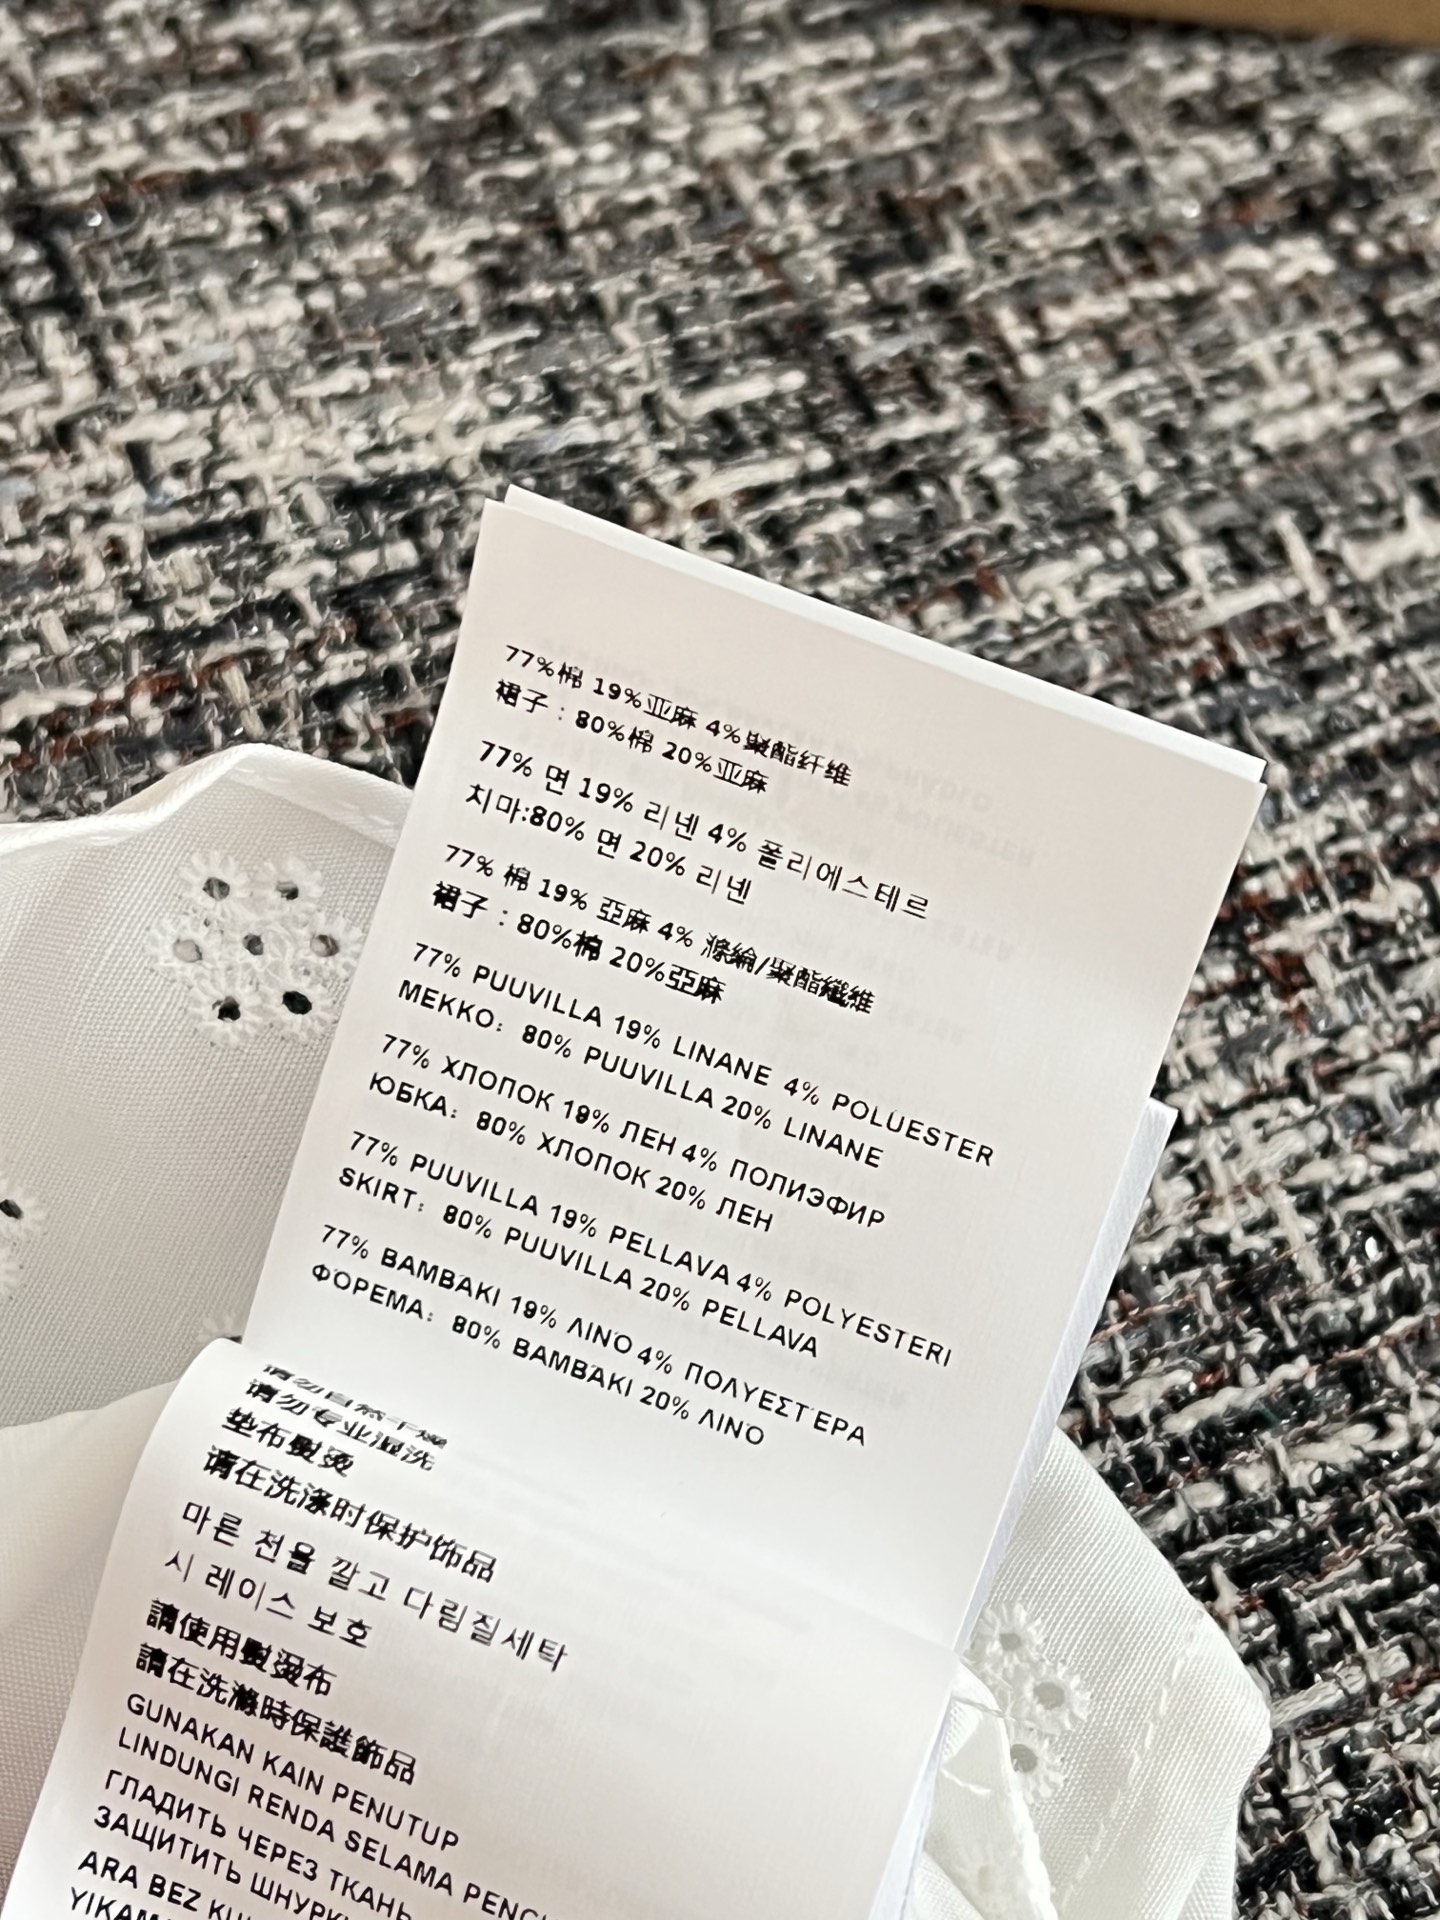 77%棉 19%亚麻 4%聚酯纤维
裙子：80%棉 20%亚麻
77% 면 19% 리넨 4% 폴리에스테르
치마:80% 면 20% 리넨
77% 棉 19% 亞麻 4% 滌綸/聚酯纖維
裙子：80%棉 20%亞麻
77% PUUVILLA 19% LINANE 4% POLUESTER
MEKKO: 80% PUUVILLA 20% LINANE
77% ХЛОПОК 19% ЛЕН 4% ПОЛИЭФИР
ЮБКА: 80% ХЛОПОК 20% ЛЕН
77% PUUVILLA 19% PELLAVA 4% POLYESTERI
SKIRT: 80% PUUVILLA 20% PELLAVA
77% ΒΑΜΒΑΚΙ 19% ΛΙΝΌ 4% ΠΟΛΥΕΣΤΈΡΑ
ΦΌΡΕΜΑ: 80% ΒΑΜΒΆΚΙ 20% ΛΙΝΌ
请勿自然干燥
请勿专业湿洗
垫布熨烫
请在洗涤时保护饰品
마른 천을 깔고 다림질세탁
시 레이스 보호
請使用熨燙布
請在洗滌時保護飾品
GUNAKAN KAIN PENUTUP
LINDUNGI RENDA SELAMA
ГЛАДИТЬ ЧЕРЕЗ ТКАНЬ
ЗАЩИТИТЬ
ARA BEZ